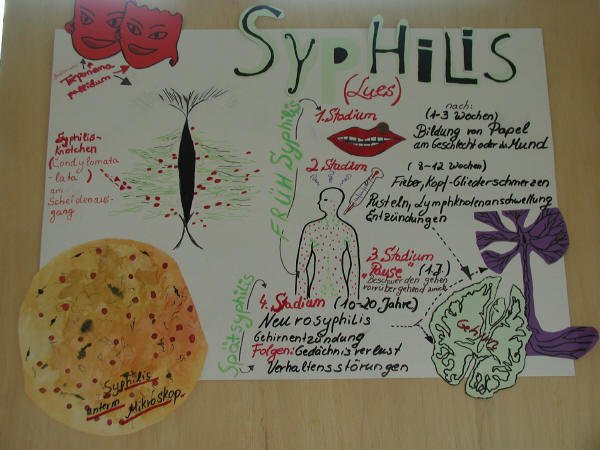 SYPHILIS
(Lues)
Treponema
pallidum
Syphilis-
knötchen
(Condylomata
lata)
am
Scheidenaus-
gang
FRÜH Syphilis
1. Stadium
nach:
(1-3 Wochen)
Bildung von Papel
am Geschlecht oder du Mund
2. Stadium
(8-12 Wochen)
Fieber, Kopf-Gliederschmerzen
Pusteln, Lymphknotenanschwellung
Entzündungen
3. Stadium
"Pause" (1 J.)
Beschwerden gehen
vorrübergehend zurück
Spätsyphilis
4. Stadium (10-20 Jahre)
Neurosyphilis
Gehirnentzündung
Folgen: Gedächnisverlust
Verhaltensstörungen
GEHIRN
Syphilis
unterm Mikroskop